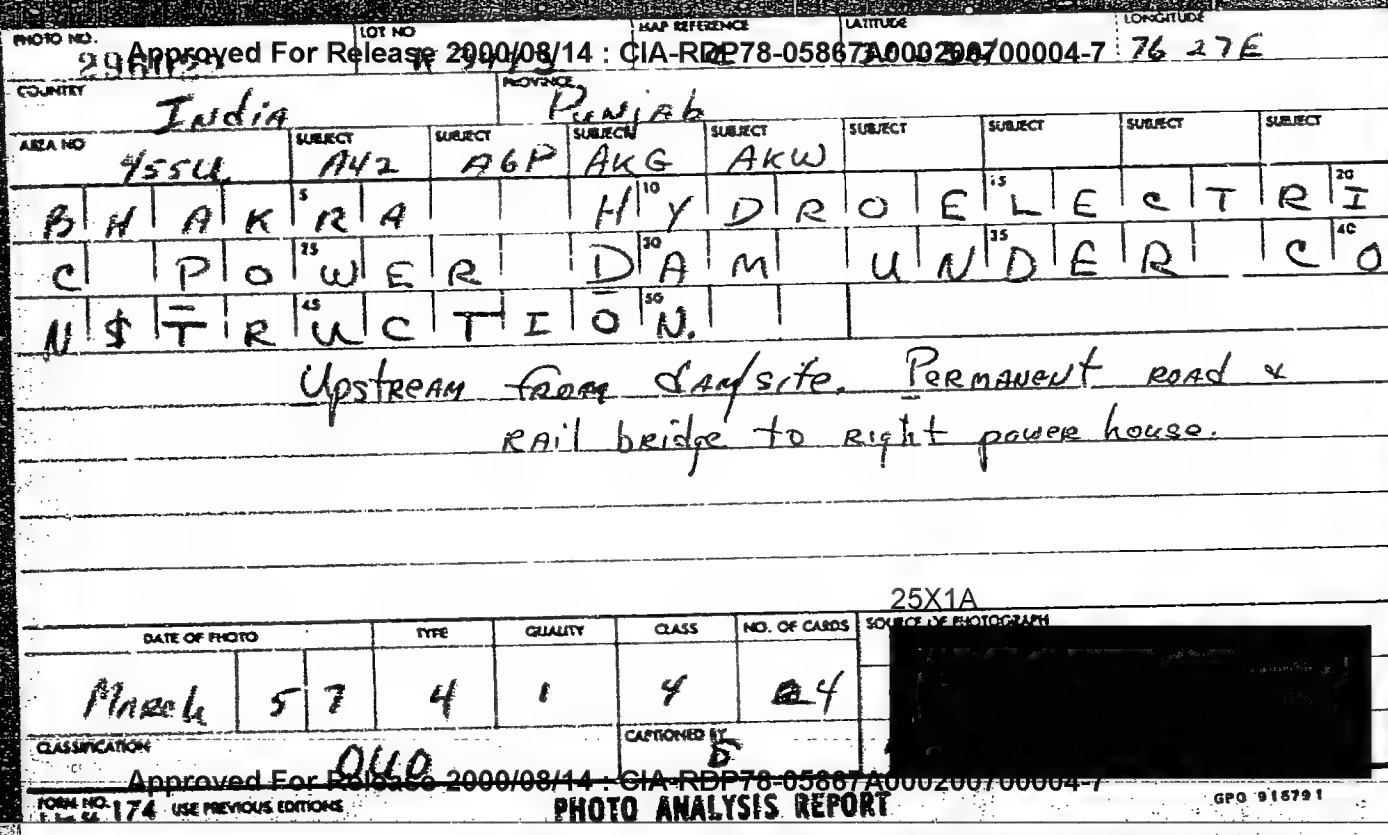 PHOTO NO. LOT NO MAP REFERENCE LATITUDE LONGITUDE
Approved For Release 2000/08/14 : CIA-RDP78-05867A000200700004-7 76 27E
COUNTRY India PROVINCE Punjab
AREA NO 455U SUBJECT A42 SUBJECT A6P SUBJECT AKG SUBJECT AKW SUBJECT SUBJECT SUBJECT SUBJECT
5 10 15 20
BHAKRA HYDROELECTRI
25 30 35 40
C POWER DAM UNDER CO
45 50
N$TRUCTION.
Upstream from damsite. Permanent road &
rail bridge to right power house.
25X1A
DATE OF PHOTO TYPE QUALITY CLASS NO. OF CARDS SOURCE OF PHOTOGRAPH
March 57 4 1 4 4
CLASSIFICATION OUO CAPTIONED BY
Approved For Release 2000/08/14 : CIA-RDP78-05867A000200700004-7
FORM NO. 174 USE PREVIOUS EDITIONS PHOTO ANALYSIS REPORT GPO 916791